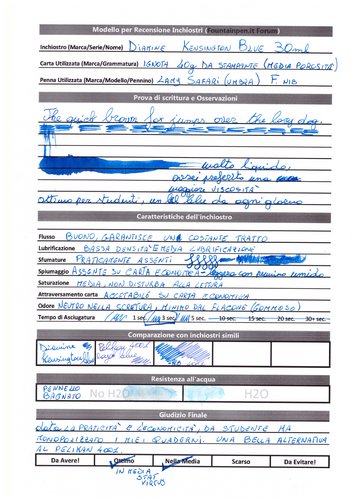 Modello per Recensione Inchiostri (Fountainpen.it Forum)
Inchiostro (Marca/Serie/Nome) DIAMINE KENSINGTON BLUE 30ml
Carta Utilizzata (Marca/Grammatura) IGNOTA 40g DA STAMPANTE (MEDIA POROSITÀ)
Penna Utilizzata (Marca/Modello/Pennino) LAMY SAFARI (UMBRA) F NIB
Prova di scrittura e Osservazioni
The quick brown fox jumps over the lazy dog.
molto liquido,
avrei preferito una
maggiore VISCOSITÀ
ottimo per studenti, un bel blu da ogni giorno
Caratteristiche dell'inchiostro
Flusso BUONO, GARANTISCE UN COSTANTE TRATTO
Lubrificazione BASSA DENSITÀ E MEDIA LUBRIFICAZIONE
Sfumature PRATICAMENTE ASSENTI
Spiumaggio ASSENTE SU CARTA ECONOMICA - leggero con pennino umido
Saturazione MEDIA, NON DISTURBA ALLA LETTURA
Attraversamento carta ACCETTABILE SU CARTA ECONOMICA
Odore NEUTRO NELLA SCRITTURA, MINIMO DAL FLACONE (GOMMOSO)
Tempo di Asciugatura 1 sec. 3 sec. 5 sec. 10 sec. 15 sec. 20 sec. 30+ sec.
Comparazione con inchiostri simili
Diamine Kensington Blue Pelikan 4001
Resistenza all'acqua
PENNELLO BAGNATO No H2O H2O
Giudizio Finale
data LA PRATICITÀ E L'ECONOMICITÀ, DA STUDENTE HA
MONOPOLIZZATO I MIEI QUADERNI. UNA BELLA ALTERNATIVA
AL PELIKAN 4001.
Da Avere! Ottimo Nella Media Scarso Da Evitare!
IN MEDIA
STAT
VIRTUS